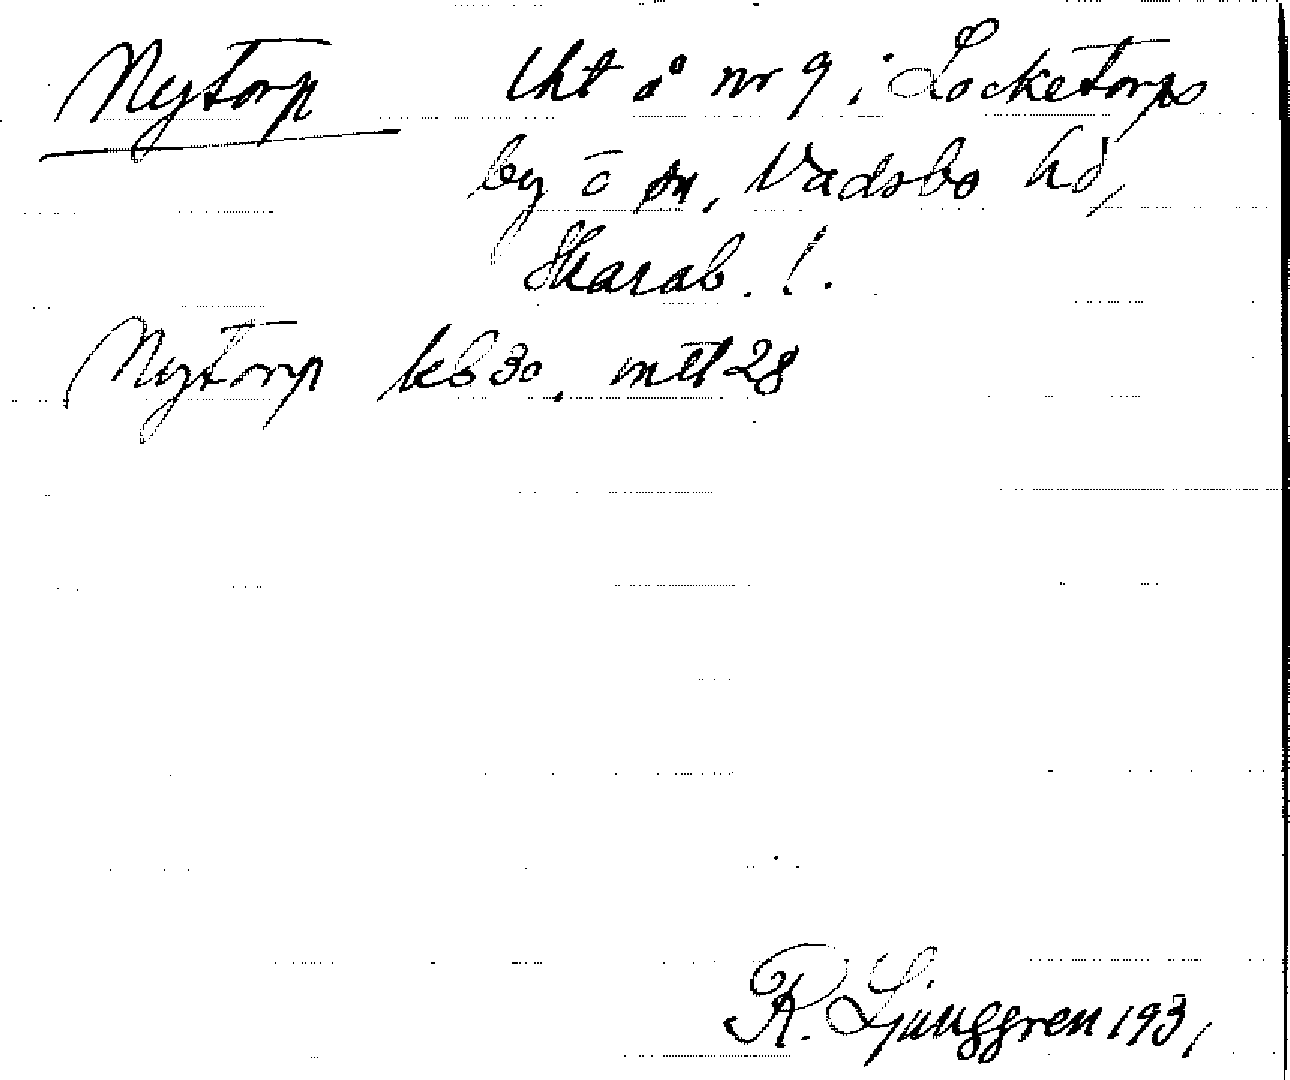 Nytorp lht å nr 9 i Locketorps
by o sn, Vadsbo hd,
Skarab. l.
Nytorp kb 30, mtl 28
R. Ljunggren 1931